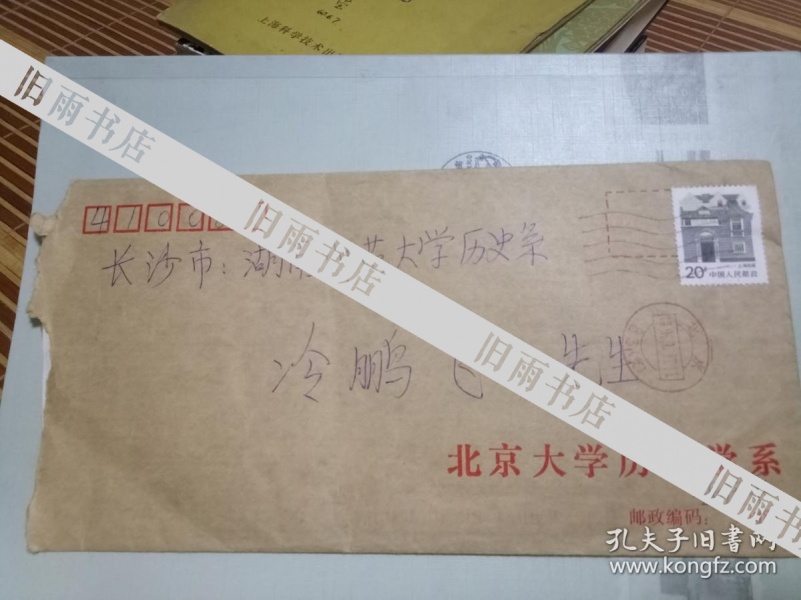 6067
上海科学技术出
4100
长沙市：湖南 大学历史系
冷鹏飞 先生
20分
中国人民邮政
北京大学历 学系
邮政编码：
旧雨书店
旧雨书店
旧雨书店
旧雨书店
旧雨书店
孔夫子旧书网
www.kongfz.com